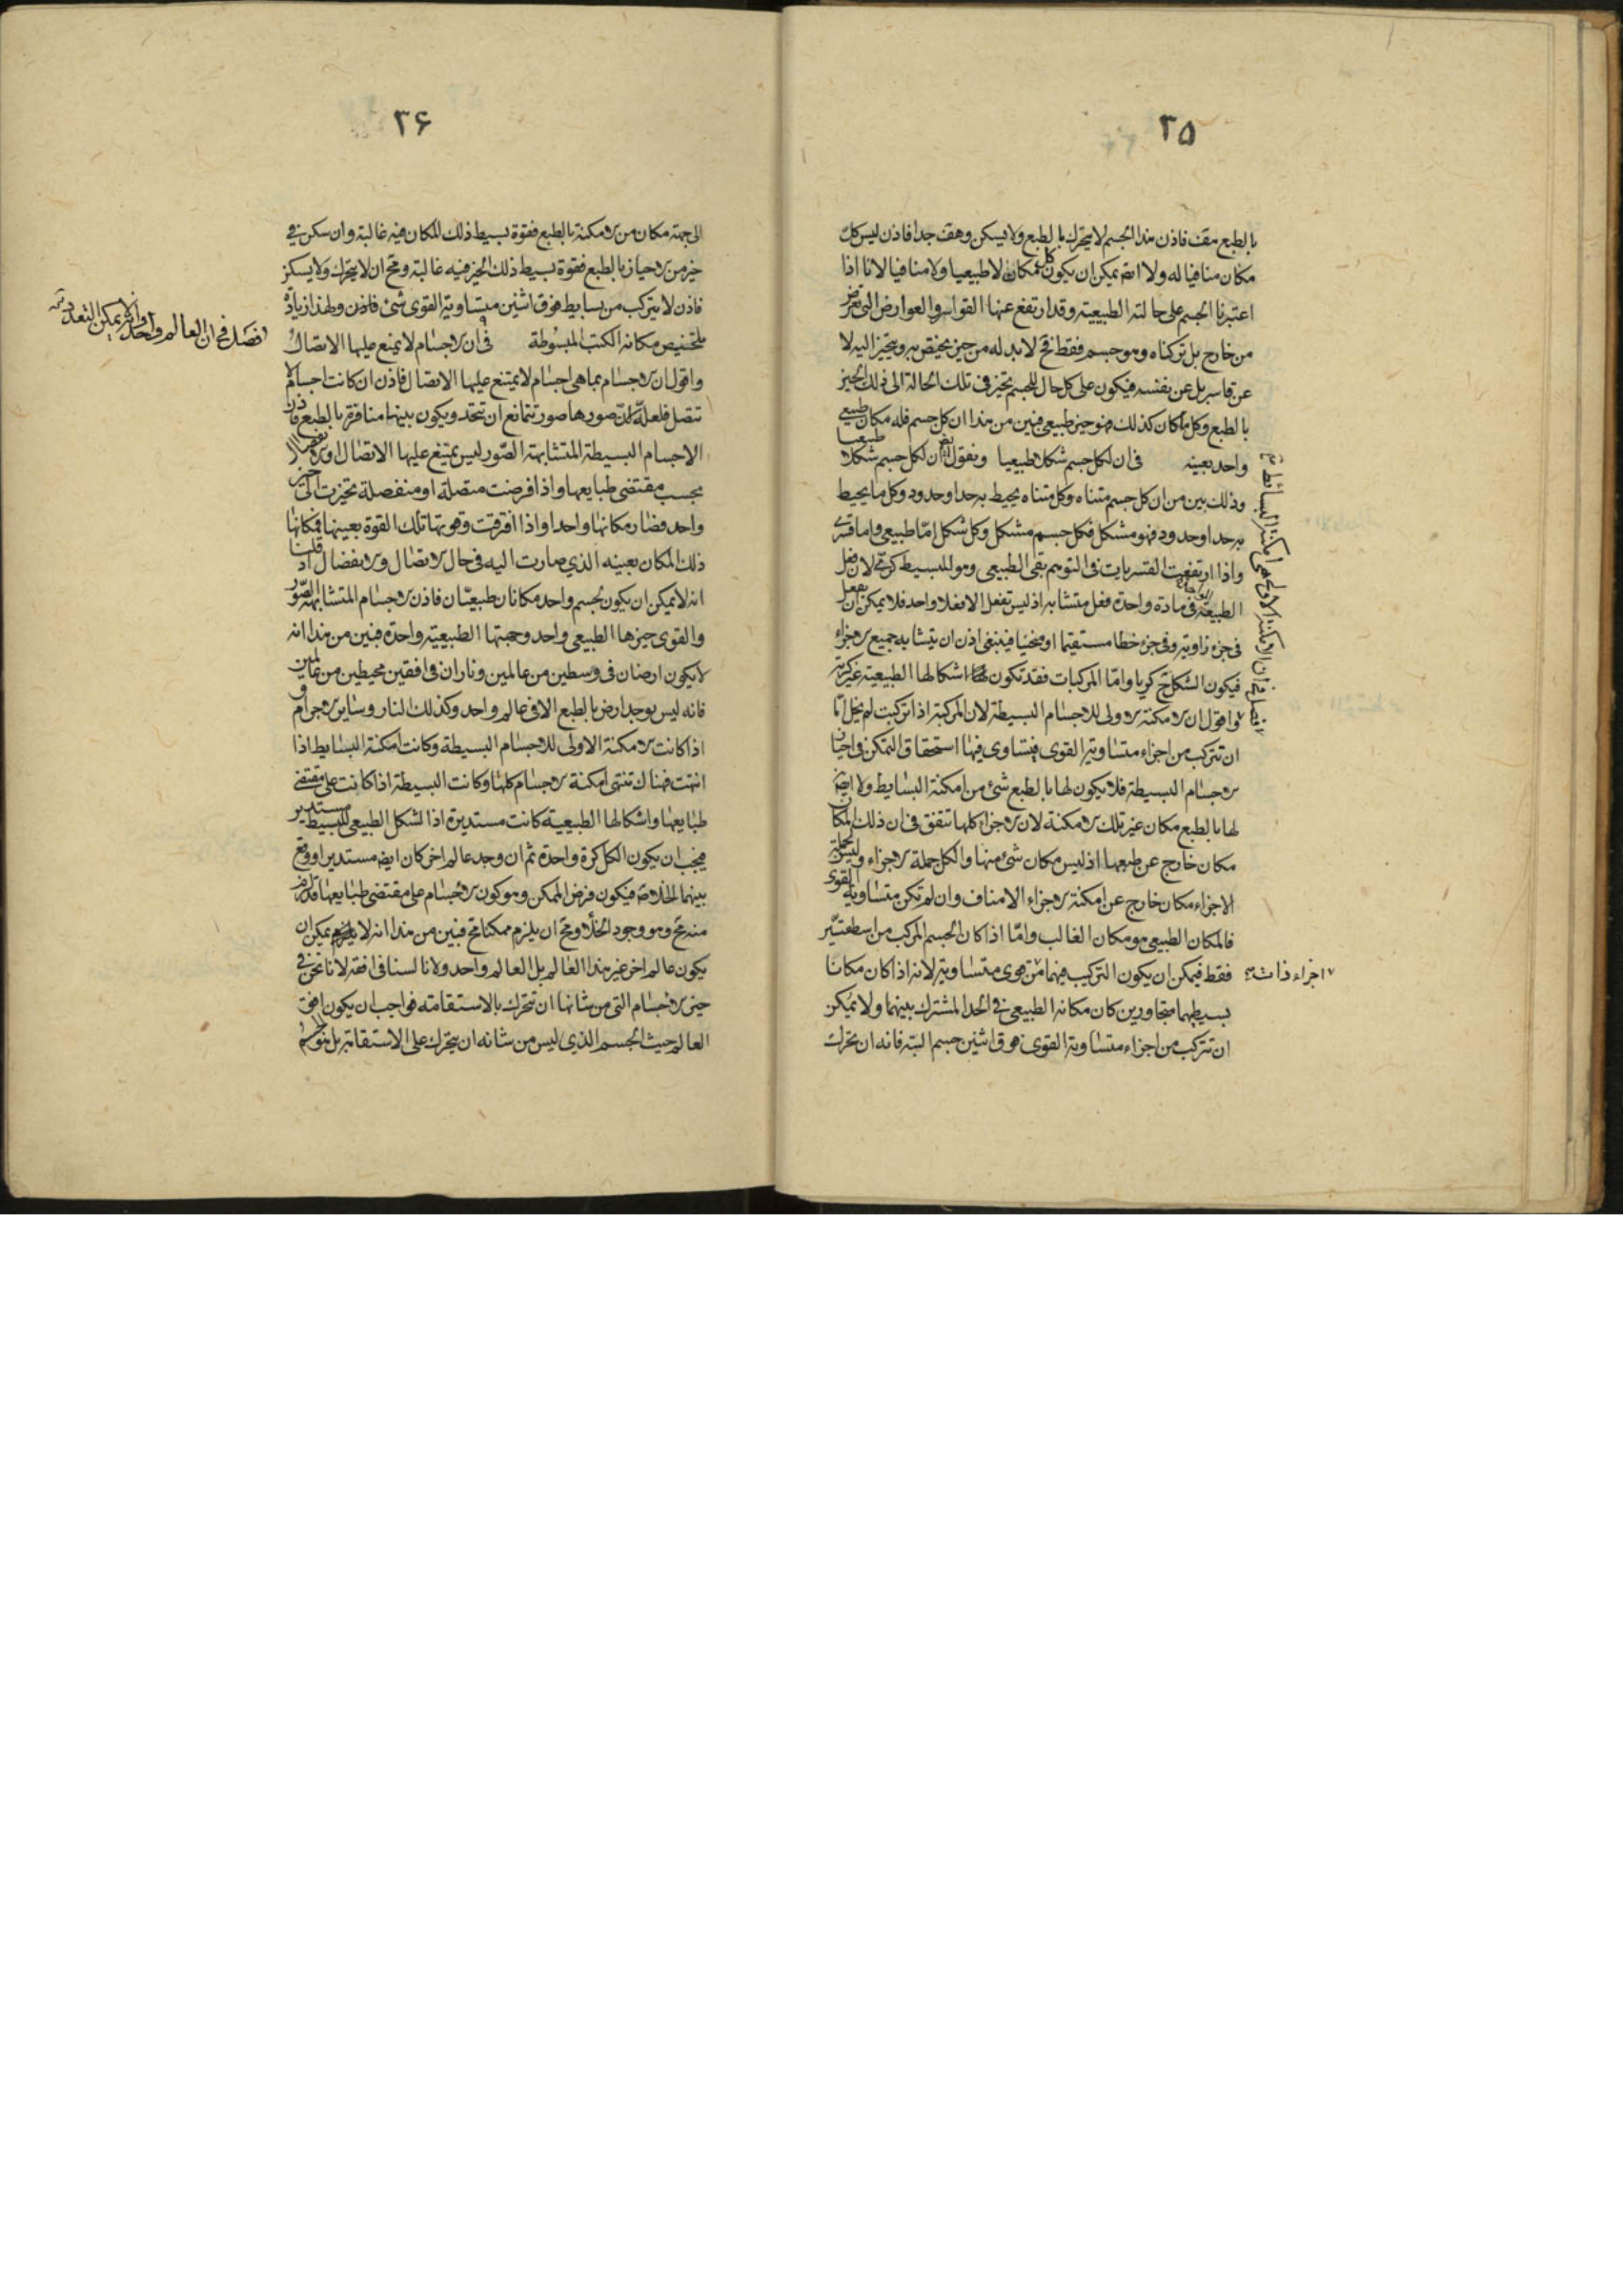 ٣٥
بالطبع هف فاذن هذا الجسم لا يتحرك بالطبع ولا يسكن وهف جدا فاذن ليس كل
مكان منافيا له ولا ايضا يمكن ان يكون كل مكان لا طبيعيا ولا منافيا لانا اذا
اعتبرنا الجسم على حالته الطبيعية وقد ارتفع عنها القواسر والعوارض التى تعرض
من خارج بل تركناه وهو جسم فقط فح لا بد له من حيز يختص به ويتحيز اليه لا
عن قاسر بل عن نفسه فيكون على كل حال للجسم تحيز فى تلك الحالة الى ذلك الحيز
بالطبع وكل ما كان كذلك فهو حيز طبيعى فبين من هذا ان كل جسم فله مكان طبيعى
واحد بعينه فى ان لكل جسم شكلا طبيعيا ونقول ايضا ان لكل جسم شكلا طبيعيا
وذلك بين من ان كل جسم متناه وكل متناه يحيط به حد او حدود وكل ما يحيط
به حد او حدود فهو مشكل فكل جسم مشكل وكل شكل امّا طبيعى واما قسرى
واذا ارتفعت القسريات فى التوهم بقى الطبيعى وهو للبسيط كرى لان فعل
الطبيعة فى مادة واحدة فعل متشابه اذ ليس تفعل الا فعلا واحد فلا يمكن ان يفعل
فى جزء زاوية وفى جزء خطا مستقيما او منحنيا فينبغى اذن ان يتشابه جميع الاجزاء
فيكون الشكل ح كريا وامّا المركبات فقد تكون اشكالها الطبيعية غير كرية
واقول ان الامكنة الاولى للاجسام البسيطة لان المركبة اذا تركبت لم يخل امّا
ان تتركب من اجزاء متساوية القوى فيتساوى فيها استحقاق التمكن فى احياز
الاجسام البسيطة فلا يكون لها بالطبع شئ من امكنة البسايط ولا ايضا
لها بالطبع مكان غير تلك الامكنة لان الاجزاء كلها تتفق فى ان ذلك المكان
مكان خارج عن طبعها اذ ليس مكان شئ منها والكل جملة الاجزاء وليس لجملة
الاجزاء مكان خارج عن امكنة الاجزاء الا مناف وان لم تكن متساوية القوى
فالمكان الطبيعى هو مكان الغالب وامّا اذا كان الجسم المركب من اسطقسين
فقط فيمكن ان يكون التركيب فيهما من قوى متساوية لانه اذا كان مكانا
بسيطيهما متجاورين كان مكانه الطبيعى فى الحد المشترك بينهما ولا يمكن
ان تتركب من اجزاء متساوية القوى فوق اثنين جسم البتة فانه ان تحرك
فصل فى ان الامكنة الاولى هى امكنة البسائط
اجزاء ذات
٣۶
الى جهة مكان من الامكنة بالطبع فقوة بسيط ذلك المكان فيه غالبة وان سكن فى
حيز من الاحياز بالطبع فقوة بسيط ذلك الحيز فيه غالبة ومح ان لا يتحرك ولا يسكن
فاذن لا يتركب من بسايط فوق اثنين متساوية القوى شئ فاذن ولهذا زيادة
تلخيص مكانه الكتب المبسوطة فى ان الاجسام لا يمنع عليها الاتصال
واقول ان الاجسام بما هى اجسام لا يمتنع عليها الاتصال فاذن ان كانت اجسام لا
تتصل فلعلة ان صورها صور تتمانع ان تتحد ويكون بينها منافرة بالطبع فاذن
الاجسام البسيطة المتشابهة الصّور ليس يمتنع عليها الاتصال او الانفصال
بحسب مقتضى طبايعها واذا فرضت متصلة او منفصلة تحيزت الى حيز
واحد فصار مكانها واحدا واذا افترقت وقوتها تلك القوة بعينها فمكانها
ذلك المكان بعينه الذى صارت اليه فى حال الاتصال والانفصال اذ قلنا
انه لا يمكن ان يكون لجسم واحد مكانان طبيعيّان فاذن الاجسام المتشابهة الصّور
والقوى حيزها الطبيعى واحد وجهتها الطبيعية واحدة فبين من هذا انه
لا يكون ارضان فى وسطين من عالمين وناران فى افقين محيطين من عالمين
فانه ليس يوجد ارض بالطبع الا فى عالم واحد وكذلك النار وساير الاجرام و
اذا كانت الامكنة الاولى للاجسام البسيطة وكانت امكنة البسايط اذا
انتهت فهناك تنتهى امكنة الاجسام كلها وكانت البسيطة اذا كانت على مقتضى
طبايعها واشكالها الطبيعية كانت مستديرة اذ الشكل الطبيعى للبسيط مستدير
فيجب ان يكون الكل كرة واحدة ثم ان وجد عالم اخر كان ايضا مستديرا ووقع
بينهما الخلاء فيكون فرض الممكن وهو كون الاجسام على مقتضى طبايعها قد لزم
منه مح وهو وجود الخلأ ومح ان يلزم ممكنا مح فبين من هذا انه لا يمكن ان
يكون عالم اخر غير هذا العالم بل العالم واحد ولانا لسنا فى افقه لانا نحن فى
حيز الاجسام التى من شانها ان تتحرك بالاستقامة فواجب ان يكون افق
العالم حيث الجسم الذى ليس من شانه ان يتحرك على الاستقامة بل هو
فصل فى ان العالم واحد وانه لا يمكن التعدد